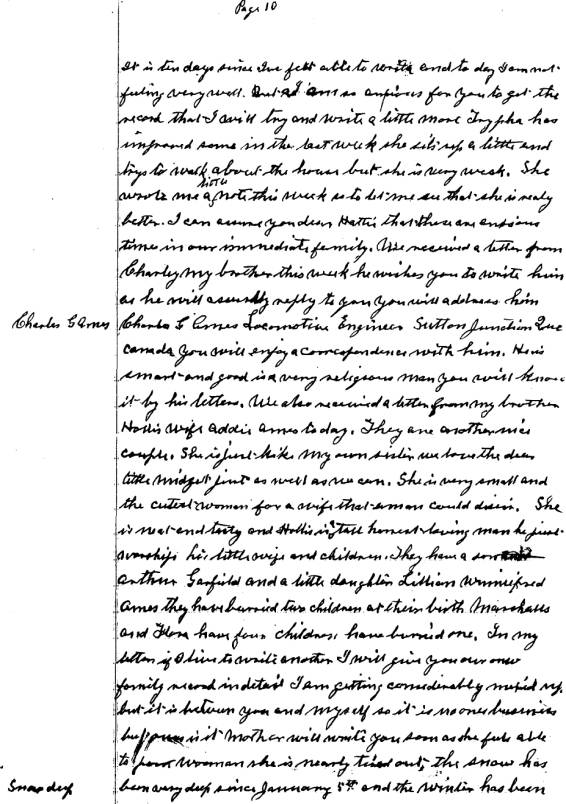 Page 10
It is ten days since Ive felt able to write and to day I am not
feeling very well. But as I am so anxious for you to get the
record that I will try and write a little more Trypha has
improved some in the last week she sits up a little and
trys to walk about the house but she is very weak. She
wrote me a little note this week so to let me see that she is realy
better. I can assure you dear Hattie that these are anxious
times in our immediate family. We received a letter from
Charley my brother this week he wishes you to write him
as he will assuredly reply to you you will address him
Charles G Ames Charles G Ames Locomotive Engineer Sutton Junction Que
Canada you will enjoy a correspondence with him. He is
smart and good is a very religious man you will know
it by his letters. We also received a letter from my brother
Hollis wife Addie Ames to day. They are another nice
couple. She is just like my own sister we love the dear
little midget just as well as we can. She is very small and
the cutest woman for a wife that a man could desire. She
is neat and tasty and Hollis is tall honest loving man he just
worships his little wife and children. They have a son
Arthur Garfield and a little daughter Lillian Winnifred
Ames they have burried two children at their birth Marshalls
and Flora have four children have burried one. In my
letter if I live to write another I will give you our own
family record in detail I am getting considerably mixed up.
but it is between you and myself so it is no ones business
but is it Mother will write you soon as she feels able
to poor woman she is nearly tired out, the snow has
Snow deep been very deep since January 5th and the winter has been